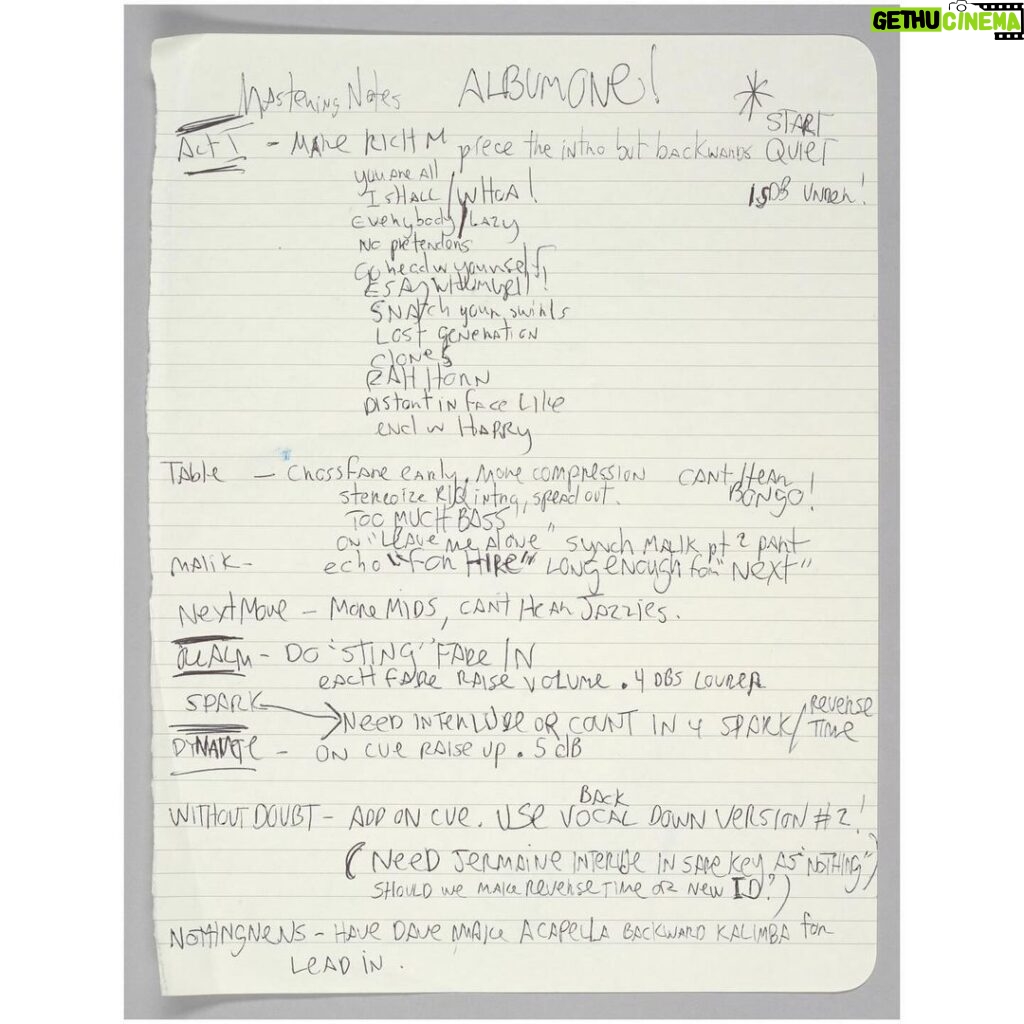 GETHUCINEMA
Mastering Notes ALBUM ONE!
* START QUIET
Act 1 - Make Rich M piece the intro but backwards
1.5 DB under!
you are all
I SHALL / WHOA!
Everybody / Lazy
No pretenders
Go head w yourself!
SNAtch your swirls
Lost generation
Clones
RAH HORN
Distant in face like
end w HAPPY
Table - Crossfade early. More compression CANT HEAR BONGO!
stereoize intro, spread out.
TOO MUCH BASS
ON "Leave me alone" synch MALIK pt 2 part
MALIK - echo "FOR HIRE" LONG enough for "NEXT"
Next Move - More MIDS, CANT HEAR JAZZIES.
REALM - DO "STING" FADE IN
each FADE RAISE VOLUME .4 DBS LOUDER
SPARK → NEED INTERLUDE OR COUNT IN 4 SPARK / REVERSE TIME
DYNAMITE - ON CUE RAISE UP .5 dB
WITHOUT DOUBT - ADD ON CUE. USE BACK VOCAL DOWN VERSION #2!
(NEED JERMAINE INTERLUDE IN SAME KEY AS "NOTHING")
SHOULD WE MAKE REVERSE TIME OR NEW ID?)
- HAVE DAVE MAKE ACAPELLA BACKWARD KALIMBA for
LEAD IN.